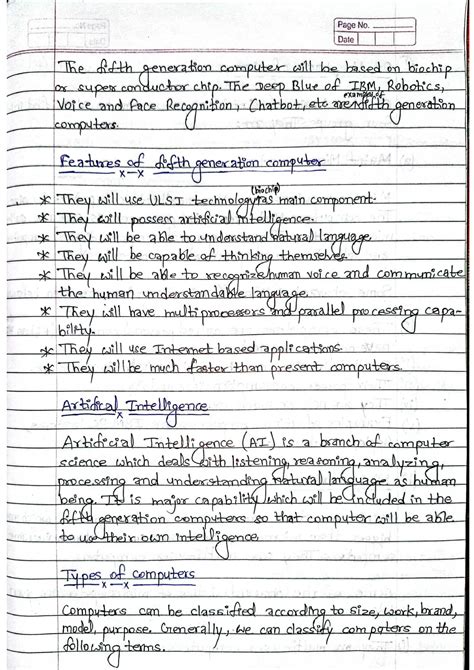 Page No.
Date
The fifth generation computer will be based on biochip
or super conductor chip. The Deep Blue of IBM, Robotics,
Voice and Face Recognition, Chatbot, etc are examples of fifth generation
computers.
Features of fifth generation computer
* They will use ULSI technology (biochip) as main component.
* They will possess artificial intelligence.
* They will be able to understand natural language
* They will be capable of thinking themselves
* They will be able to recognize human voice and communicate
the human understandable language.
* They will have multiprocessors and parallel processing capa-
bility.
* They will use Internet based applications.
* They will be much faster than present computers.
Artifical Intelligence
Artificial Intelligence (AI) is a branch of computer
science which deals with listening, reasoning, analyzing,
processing and understanding natural language as human
being. It is major capability which will be included in the
fifth generation computers so that computer will be able
to use their own intelligence
Types of computers
Computers can be classified according to size, work, brand,
model, purpose. Generally, we can classify computers on the
following terms.